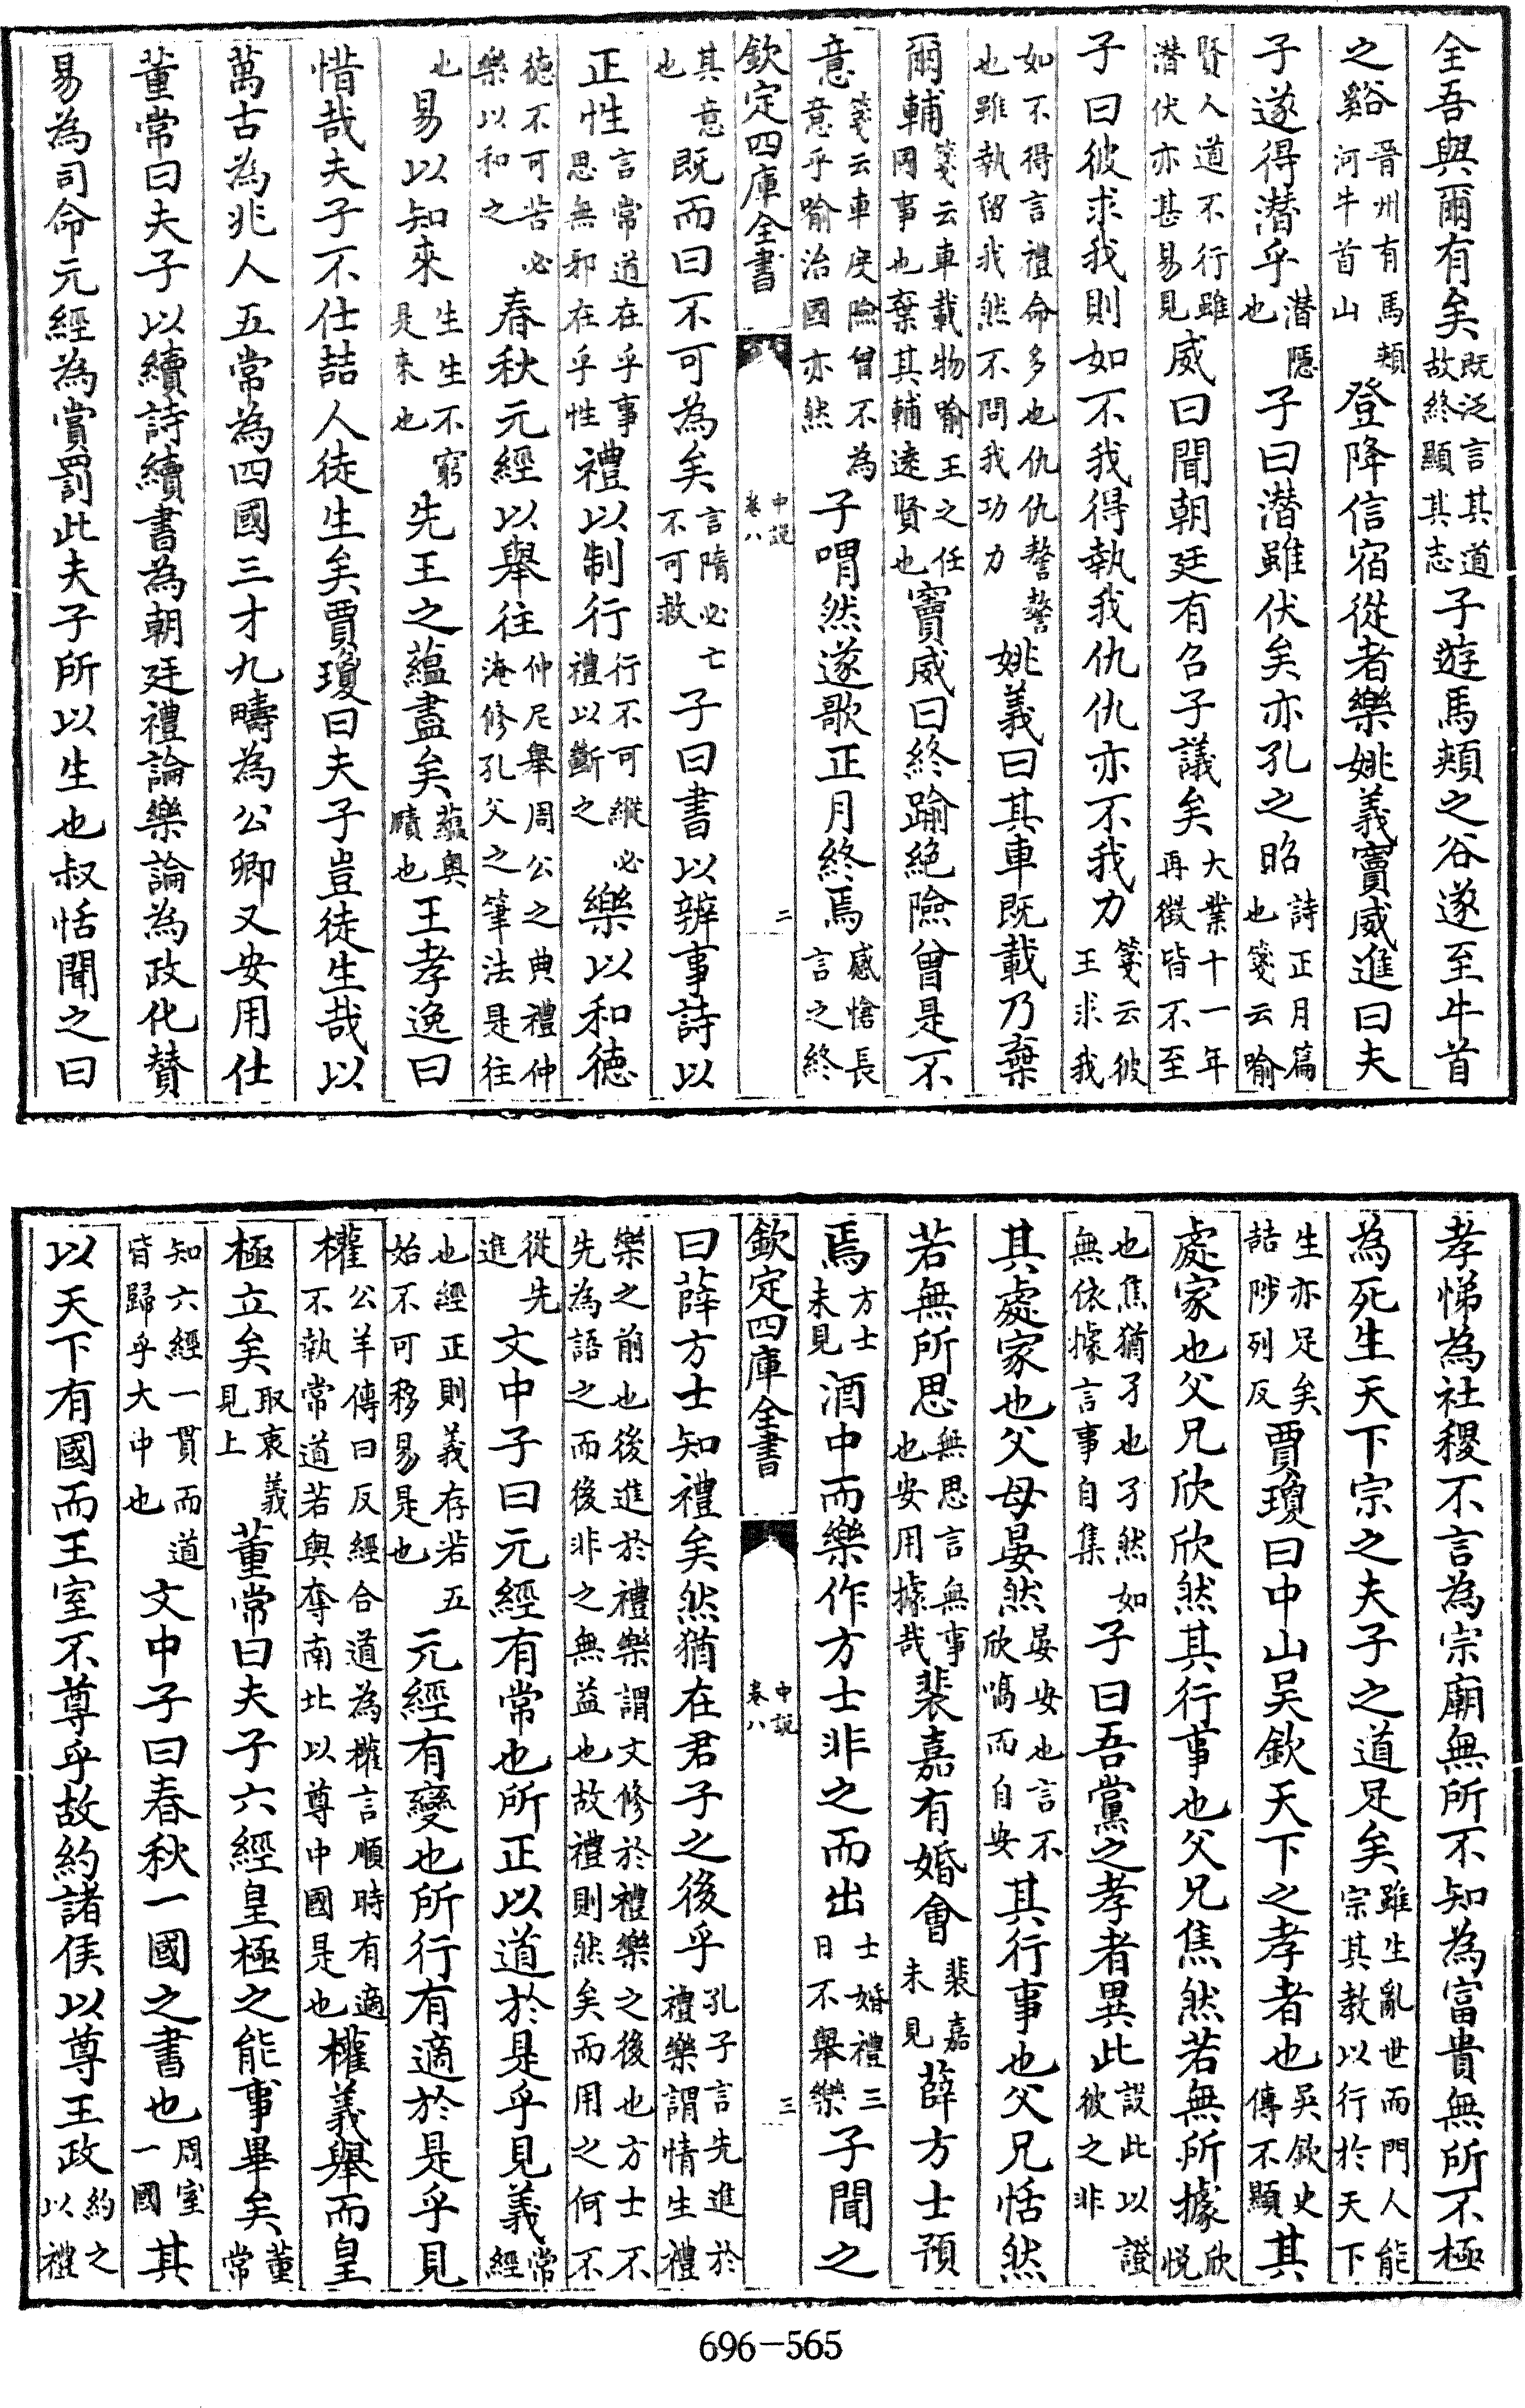 全吾與爾有矣既泛言其道故終顯其志子遊馬頰之谷遂至牛首
之谿晋州有馬頰河牛首山登降信宿從者樂姚義竇威進曰夫
子遂得潛乎潛隱也子曰潛雖伏矣亦孔之昭詩正月篇也箋云喻
賢人道不行雖潛伏亦甚易見威曰聞朝廷有召子議矣大業十一年再徵皆不至
子曰彼求我則如不我得執我仇仇亦不我力箋云彼王求我
如不得言禮命多也仇仇謷謷也雖執留我然不問我功力姚義曰其車既載乃棄
爾輔箋云車載物喻王之任國事也棄其輔遠賢也竇威曰終踰絕險曾是不
意箋云車度險曾不為意乎喻治國亦然子喟然遂歌正月終焉感愴長言之終
欽定四庫全書 中說 卷八 二
其意也既而曰不可為矣言隋必亡不可救子曰書以辨事詩以
正性言常道在乎事思無邪在乎性禮以制行行不可縱必禮以斷之樂以和德
德不可苦必樂以和之春秋元經以舉往仲尼舉周公之典禮仲淹修孔父之筆法是往
也易以知來生生不窮是來也先王之蘊盡矣蘊奥賾也王孝逸曰
惜哉夫子不仕喆人徒生矣賈瓊曰夫子豈徒生哉以
萬古為兆人五常為四國三才九疇為公卿又安用仕
董常曰夫子以續詩續書為朝廷禮論樂論為政化贊
易為司命元經為賞罰此夫子所以生也叔恬聞之曰
孝悌為社稷不言為宗廟無所不知為富貴無所不極
為死生天下宗之夫子之道足矣雖生亂世而門人能宗其教以行於天下
生亦足矣喆陟列反賈瓊曰中山吳欽天下之孝者也吳欽史傳不顯其
處家也父兄欣欣然其行事也父兄焦然若無所據欣悦
也焦猶孑也孑然如無依據言事自集子曰吾黨之孝者異此設此以證彼之非
其處家也父母晏然晏安也言不欣嗃而自安其行事也父兄恬然
若無所思無思言無事也安用據哉裴嘉有婚會裴嘉未見薛方士預
焉方士未見酒中而樂作方士非之而出士婚禮三日不舉樂子聞之
欽定四庫全書 中說 卷八 三
曰薛方士知禮矣然猶在君子之後乎孔子言先進於禮樂謂情生禮
樂之前也後進於禮樂謂文修於禮樂之後也方士不先為語之而後非之無益也故禮則然矣而用之何不
從先進文中子曰元經有常也所正以道於是乎見義常經
也經正則義存若五始不可移易是也元經有變也所行有適於是乎見
權公羊傳曰反經合道為權言順時有適不執常道若與奪南北以尊中國是也權義舉而皇
極立矣取衷義見上董常曰夫子六經皇極之能事畢矣董常
知六經一貫而道皆歸乎大中也文中子曰春秋一國之書也周室一國其
以天下有國而王室不尊乎故約諸侯以尊王政約之以禮
696-565